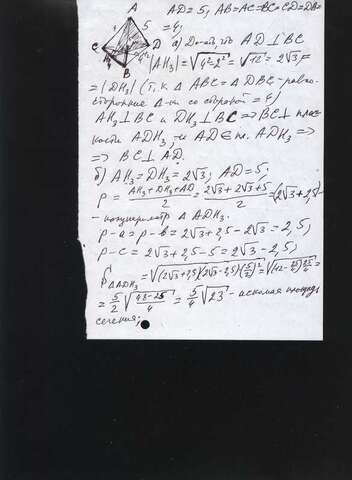 A AD=5, AB=AC=BC=CD=DB=
5 =4,
C D а) Д-ать, что AD⊥BC
B |AH₃|=√(4²-2²)=√12=2√3=
=|DH₃| (т.к. Δ ABC=Δ DBC - равно-
сторонние Δ-ки со стороной =4)
AH₃⊥BC и DH₃⊥BC ⇒ BC⊥ плос-
кости ADH₃, и AD∈пл. ADH₃ ⇒
⇒ BC⊥AD.
б) AH₃=DH₃=2√3, AD=5,
p=(AH₃+DH₃+AD)/2=(2√3+2√3+5)/2=(2√3+2,5)-
- полупериметр Δ ADH₃.
p-a=p-b=2√3+2,5-2√3=2,5,
p-c=2√3+2,5-5=2√3-2,5,
=√((2√3+2,5)(2√3-2,5)(5/2)²)=
=5/2√((48-25)/4)=5/4√23 - искомая площадь
сечения;